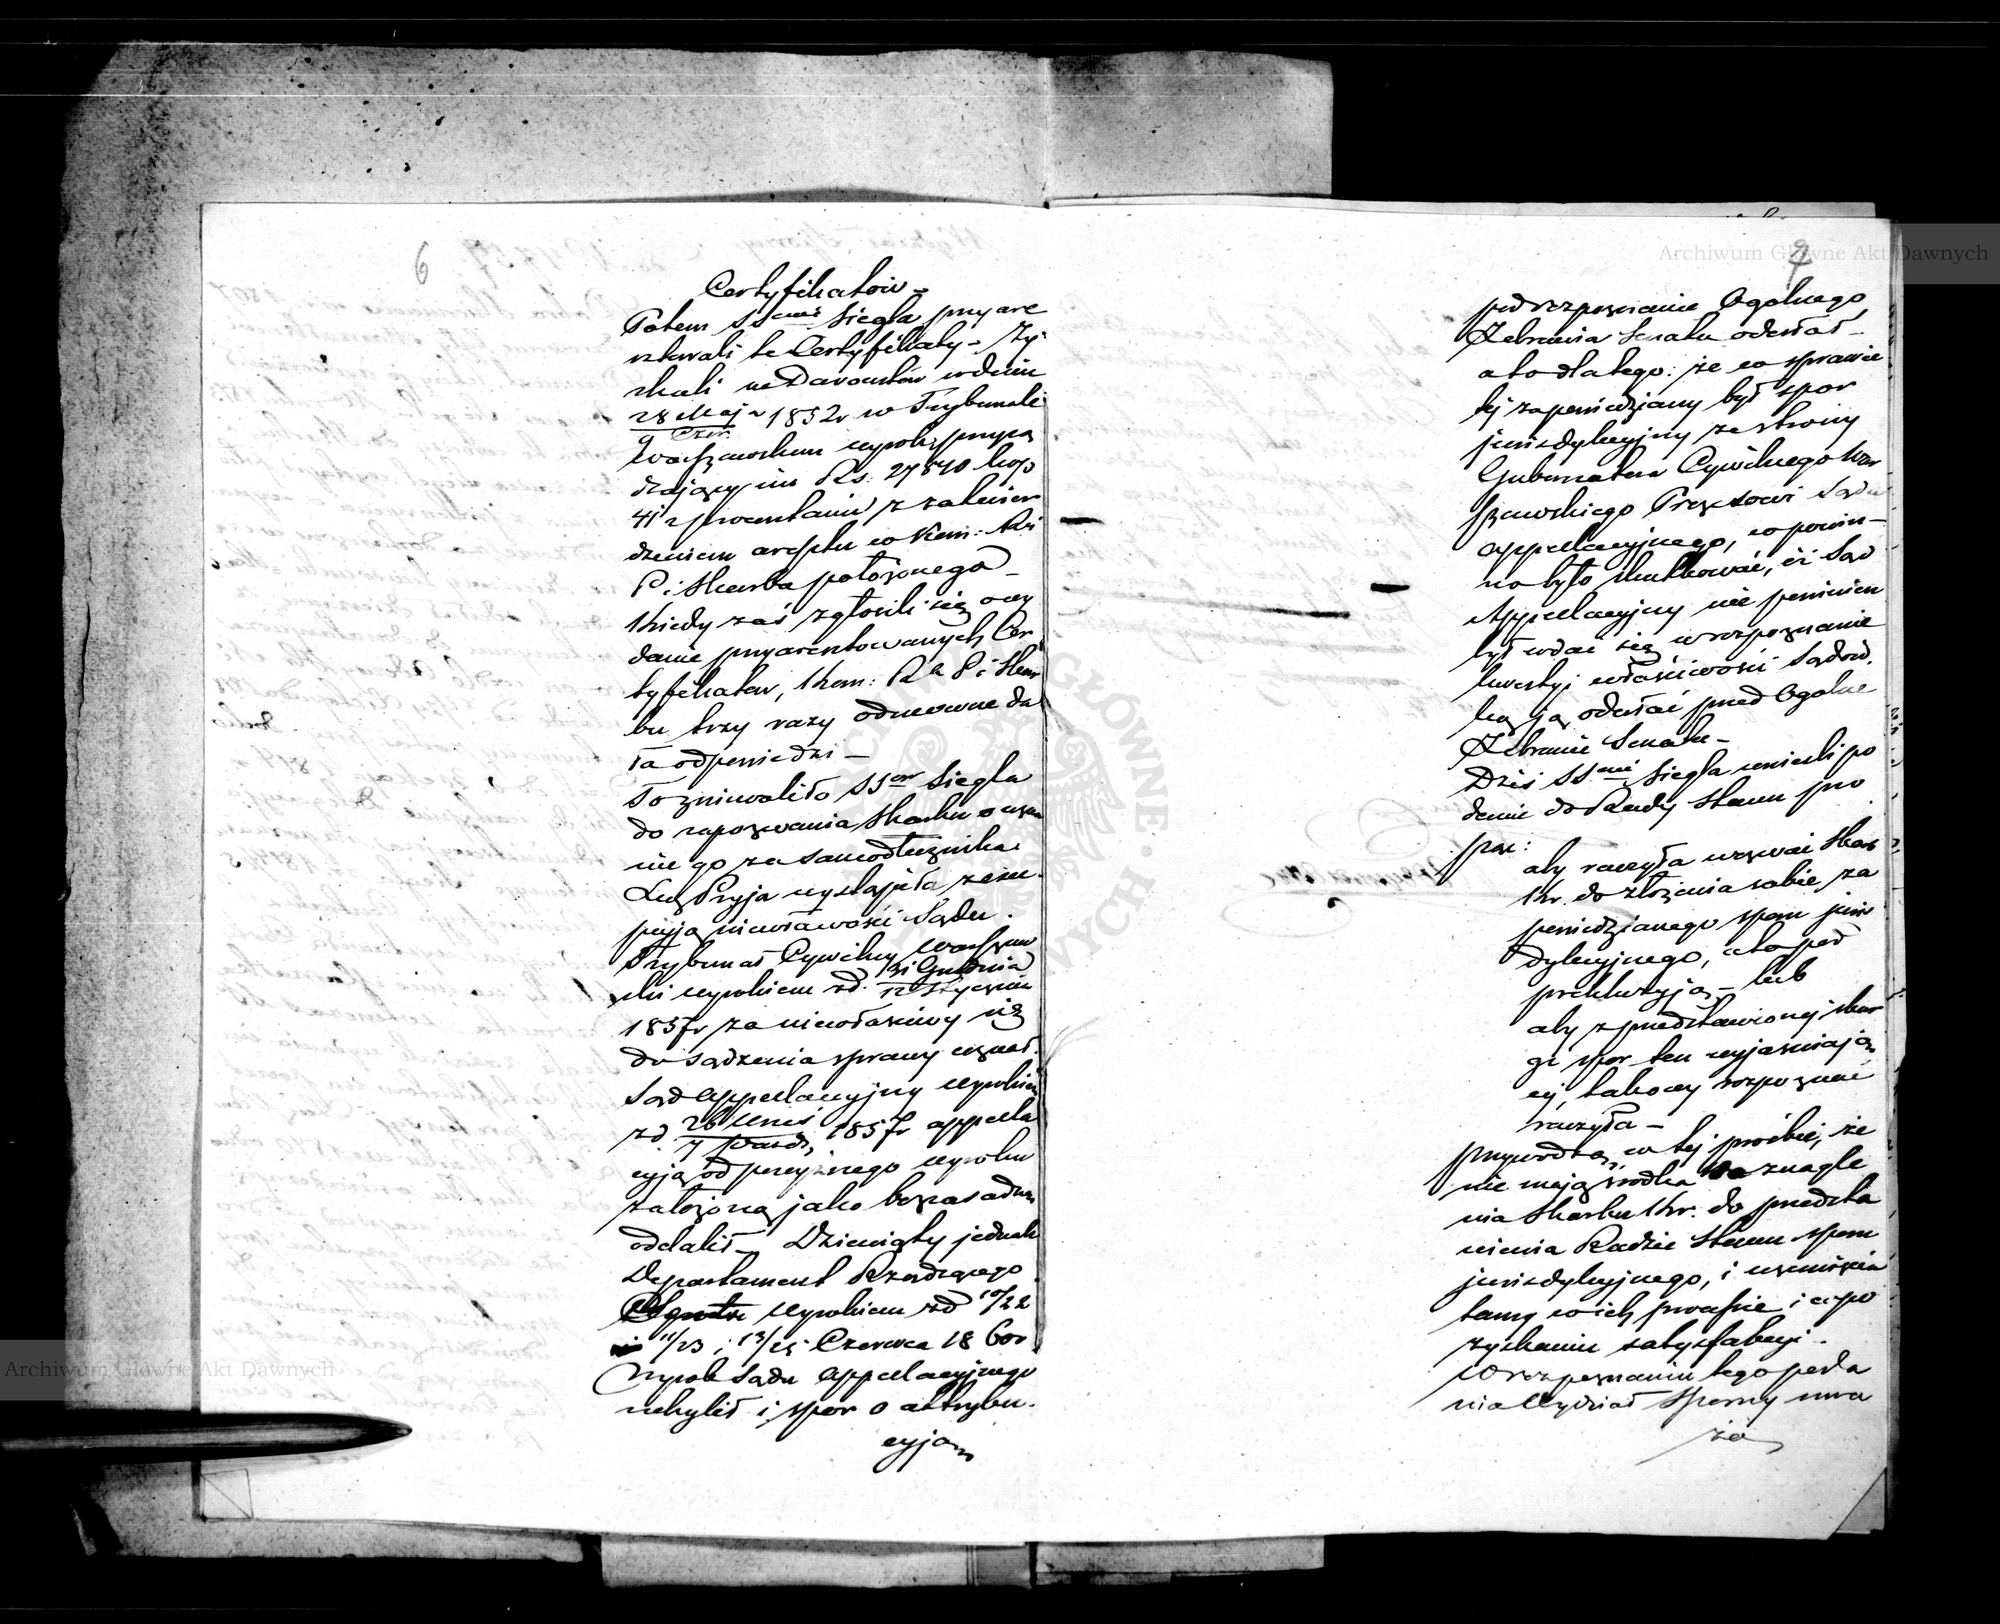 6
Certyfikatów –
Potem SSowie Siegla przyare
sztowali te Certyfikaty – Zy-
skali na Davoustów w dniu
28 Maja
9 Czer. 1832r w Trybunale
Warszawskim wyrok przysą
dzający im Rs: 27540 kop
41 z procentami z zatwier
dzeniem aresztu w Kom: Rzą
P. i Skarbu położonego –
Kiedy zaś zgłosili się o wy
danie przyaresztowanych Cer
tyfikatów, Kom: R. P. i Skar
bu trzy razy odmowne da
ła odpowiedzi –
To zniewoliło SSow Siegla
do zapozwania Skarbu o uzna
nie go za samodłużnika.
Lecz Pryja wystąpiła z exce
pcją niewławości Sądu.
Trybunał Cywilny Warszaw
ski wyrokiem zd. 31 Grudnia
12 Stycznia
1857r za niewłaściwy się
do sądzenia sprawy uznał.
Sąd Appellacyjny wyrokiem
zd. 26 Wrześ
7 Paźdz, 1857r appella
cyją od powyższego wyroku
założoną jako bezzasadną
oddalił – Dziewiąty jednak
Departament Rządzącego
Senatu wyrokiem zd 10/22
11/23 i 13/25 Czerwca 1860r
Wyrok Sądu Appellacyjnego
uchylił i spór o attrybu-
cyją
7
pod rozpoznanie Ogólnego
Zebrania Senatu odesłał –
a to dlatego: że w sprawie
tej zapowiedziany był spór
jurisdykcyjny ze strony
Gubernatora Cywilnego War
szawskiego Prezesowi Sądu
Appellacyjnego, co powin-
no było skutkować, iż Sąd
Appellacyjny nie powinien
był wdać się w rozpoznanie
kwestyi właściwości Sądów.
lecz ją odesłać pred Ogólne
Zebranie Senatu –
Dziś SSowie Siegla wnieśli po
danie do Rady Stanu pro
sząc:
aby raczyła wezwać Skarb
Kr. do złożenia sobie za
powiedzianego sporu juris
dykcyjnego, a to pod
prekluzyją – lub
aby z przedstawionej skar
gi spór ten wyjaśniają
cej, takowy rozpoznać
raczyła –
Przywodzą w tej prośbie, że
nie mają środka do znagle
nia Skarbu Kr. do przedsta
wienia Radzie Stanu sporu
jurisdykcyjnego, i uśmierzenia
tamy w ich prawnie i w po
zyskaniu satysfakcyi.
W rozpoznaniu tego poda
nia Wydział Sporny uwa
ża